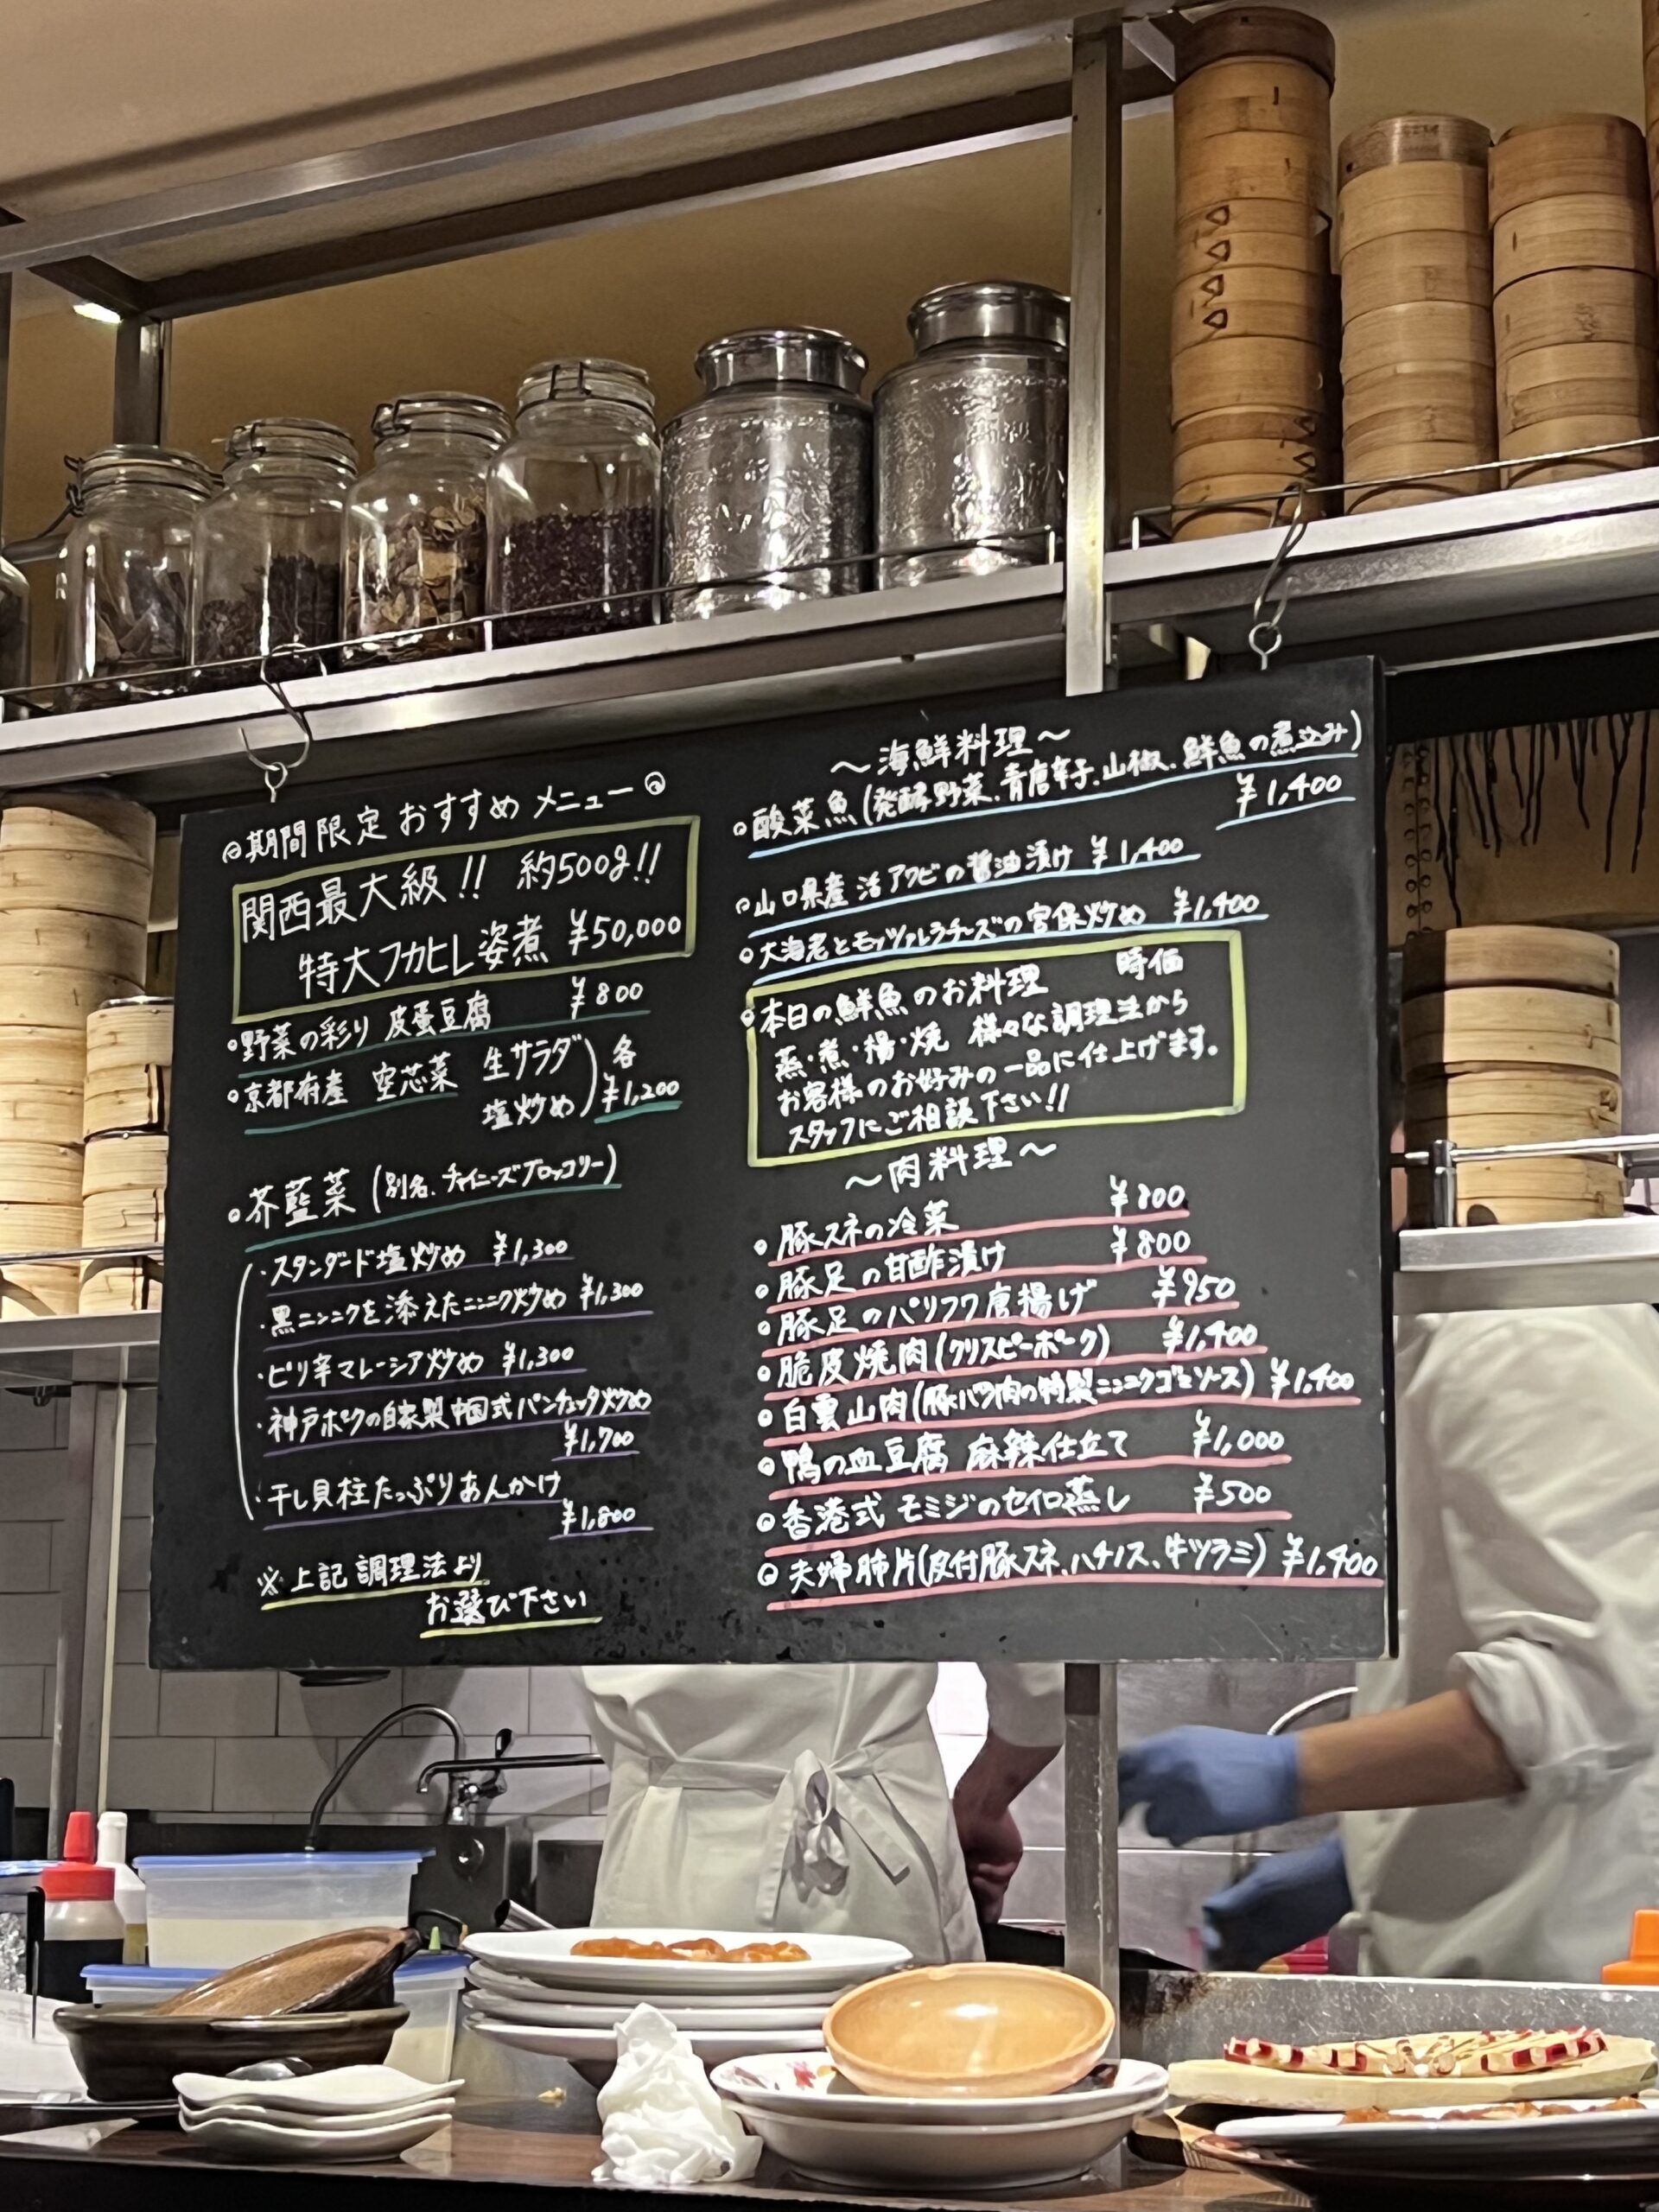 期間限定おすすめメニュー
関西最大級!! 約500g!!
特大フカヒレ姿煮 ¥50,000
野菜の彩り 皮蛋豆腐 ¥800
京都府産 空芯菜 生サラダ 各
塩炒め ¥1,200
芥藍菜(別名、チャイニーズブロッコリー)
・スタンダード塩炒め ¥1,300
・黒ニンニクを添えたニンニク炒め ¥1,300
・ピリ辛マレーシア炒め ¥1,300
・神戸ポークの自家製中国式パンチェッタ炒め
¥1,700
・干し貝柱たっぷりあんかけ
¥1,800
※上記調理法より
お選び下さい
～海鮮料理～
酸菜魚(発酵野菜、青唐辛子、山椒、鮮魚の煮込み)
¥1,400
山口県産 活アワビの醤油漬け ¥1,400
大海老とモッツァレラチーズの宮保炒め ¥1,400
本日の鮮魚のお料理 時価
蒸・煮・揚・焼 様々な調理法から
お客様のお好みの一品に仕上げます。
スタッフにご相談下さい!!
～肉料理～
豚スネの冷菜 ¥800
豚足の甘酢漬け ¥800
豚足のパリフワ唐揚げ ¥950
脆皮焼肉(クリスピーポーク) ¥1,400
白雲山肉(豚バラ肉の特製ニンニクゴマソース) ¥1,400
鴨の血豆腐 麻辣仕立て ¥1,000
香港式 モミジのセイロ蒸し ¥500
夫婦肺片(皮付豚スネ、ハチノス、牛ツラミ) ¥1,400